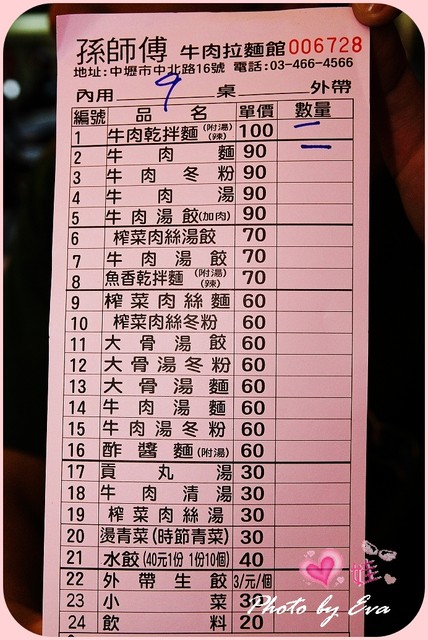 孫師傅 牛肉拉麵館 006728
地址:中壢市中北路16號 電話:03-466-4566
內用 9 桌 外帶
編號 品名 單價 數量
1 牛肉乾拌麵(附湯)(辣) 100 一
2 牛肉麵 90 一
3 牛肉冬粉 90
4 牛肉湯 90
5 牛肉湯餃(加肉) 90
6 榨菜肉絲湯餃 70
7 牛肉湯餃 70
8 魚香乾拌麵(附湯)(辣) 70
9 榨菜肉絲麵 60
10 榨菜肉絲冬粉 60
11 大骨湯餃 60
12 大骨湯冬粉 60
13 大骨湯麵 60
14 牛肉湯麵 60
15 牛肉湯冬粉 60
16 酢醬麵(附湯) 60
17 貢丸湯 30
18 牛肉清湯 30
19 榨菜肉絲湯 30
20 燙青菜(時節青菜) 30
21 水餃(40元1份 1份10個) 40
22 外帶生餃 3/元/個
23 小菜 30
24 飲料 20
Photo by Eva